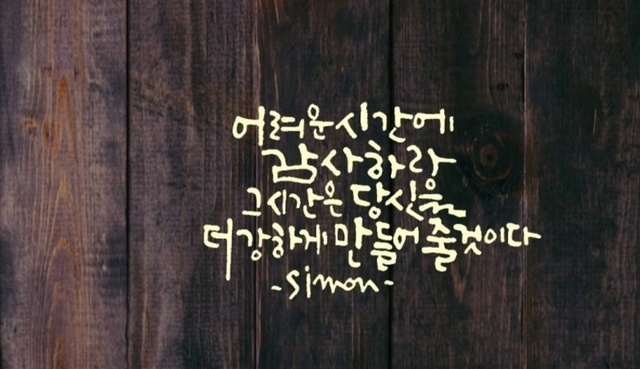 어려운시간에
감사하라
그시간은 당신을
더 강하게 만들어 줄것이다
-simon-